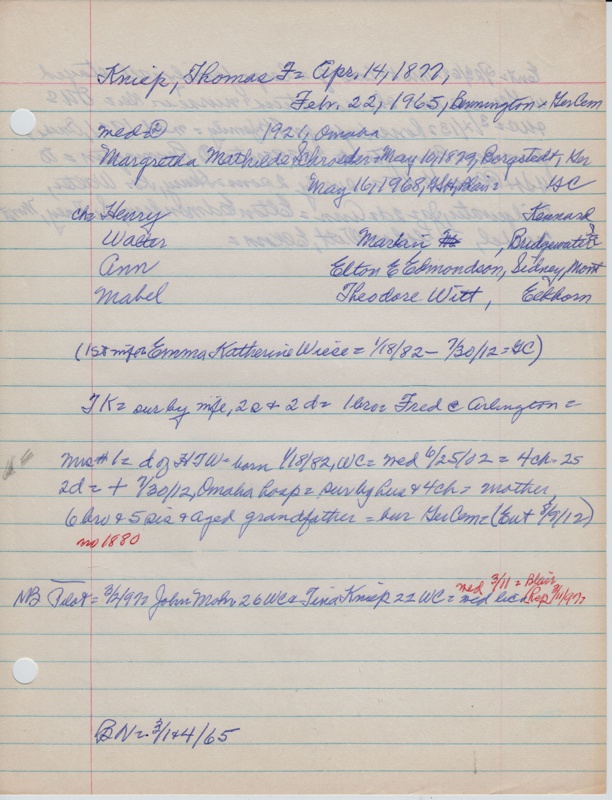 Kniep, Thomas F = Apr. 14, 1877,
Feb. 22, 1965, Bennington + Ger Cem
med ② 1921, Omaha
Margretha Mathilde Schroeder = May 10, 1879, Borgstedt, Ger
May 16, 1968, Blair = GC
ch: Henry Kennard
Walter Martin , Bridgewater
Ann Elton E Edmondson, Sidney, Mont
Mabel Theodore Witt, Elkhorn
(1st wife Emma Katherine Wiese = 1/18/82 - 7/30/12 = GC)
TK = sur by wife, 2s + 2d = 1 bro = Fred @ Arlington =
Mrs # 1 = d of HTW = born 1/18/82, WC = med 6/25/02 = 4ch = 2s
2d = + 7/30/12, Omaha hosp = sur by hus & 4ch = mother
6 bro & 5 sis & aged grandfather = bur Ger Cem = (Ent 8/9/12)
no 1880
med 3/11 = Blair
NB Pilot = 3/2/97 John Mohr 26 WC & Tina Kniep 22 WC = med lic Rep 3/11/97
BN = 3/1+4/65